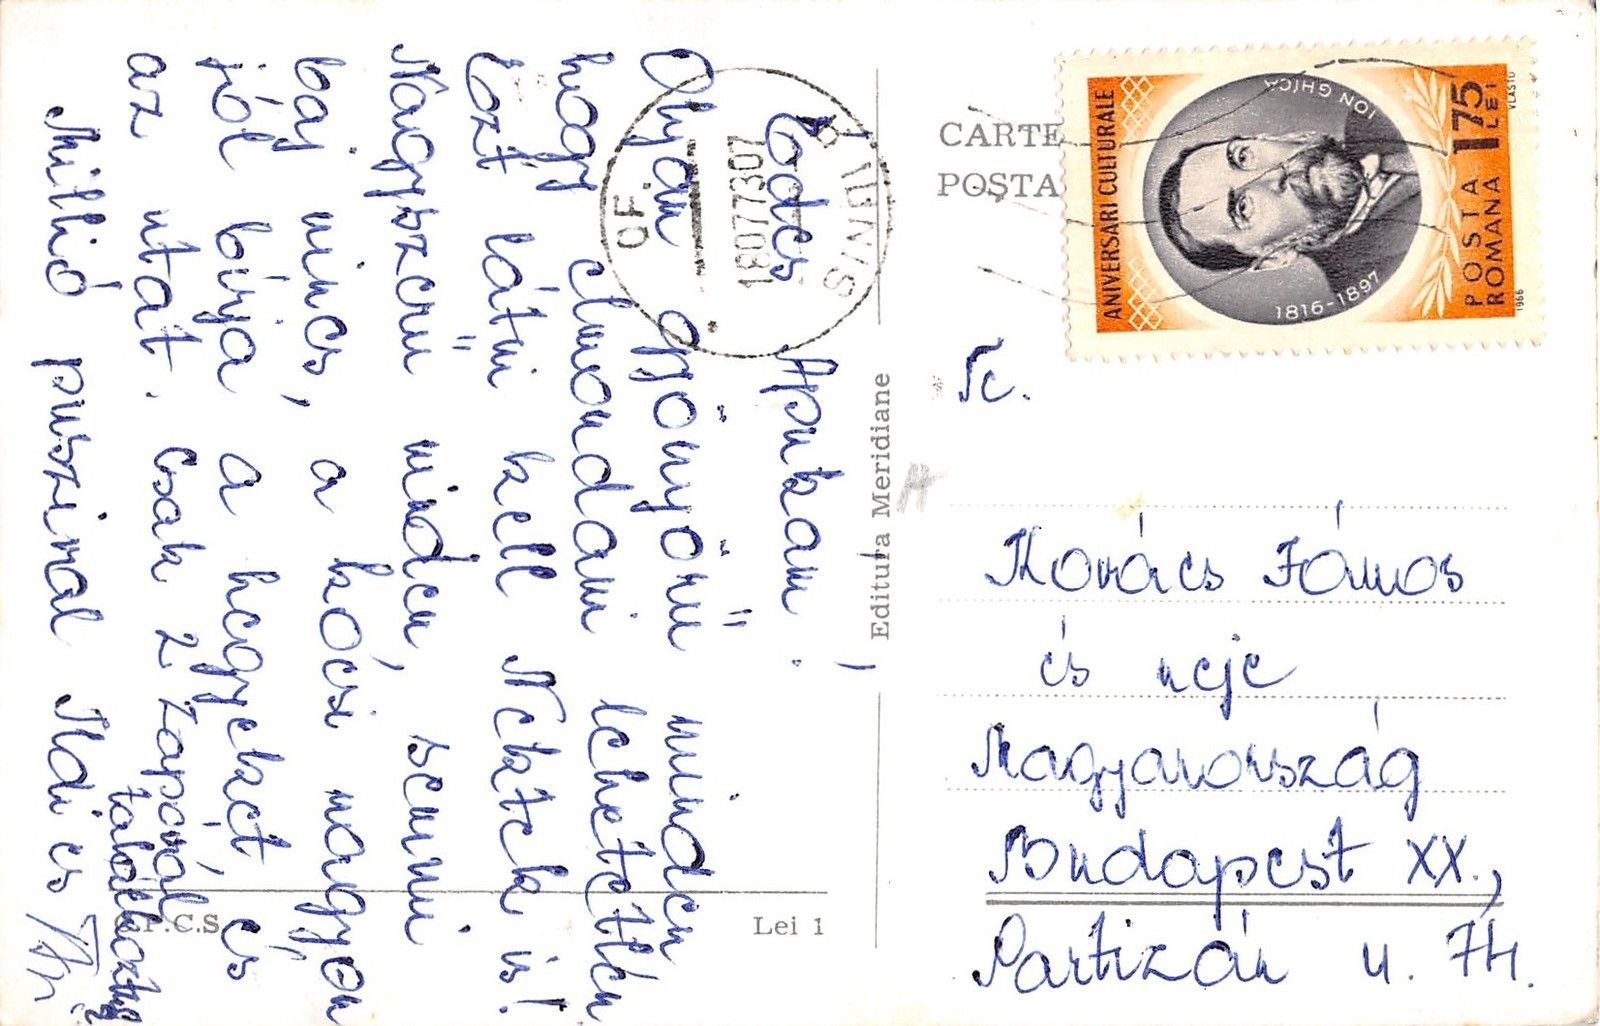 Édes Apukám!
Olyan gyönyörű minden
hogy elmondani lehetetlen
Ezt látni kell Nektek is!
Nagyszerű minden, semmi
baj nincs, a kocsi nagyon
jól bírja a hegyeket, és
az utat. Csak 2 záporral
találkoztunk
Millió puszival Ildi és
Editura Meridiane
C.P.C.S.
Lei 1
CARTE
POSTA
OF
SINAIA
18077307
ANIVERSARI CULTURALE
ION GHICA
1816-1897
POSTA
ROMANA
1 75
LEI
VLASTO
1966
Tc.
Kovács János
és neje
Magyarország
Budapest XX.,
Partizán u. 74.